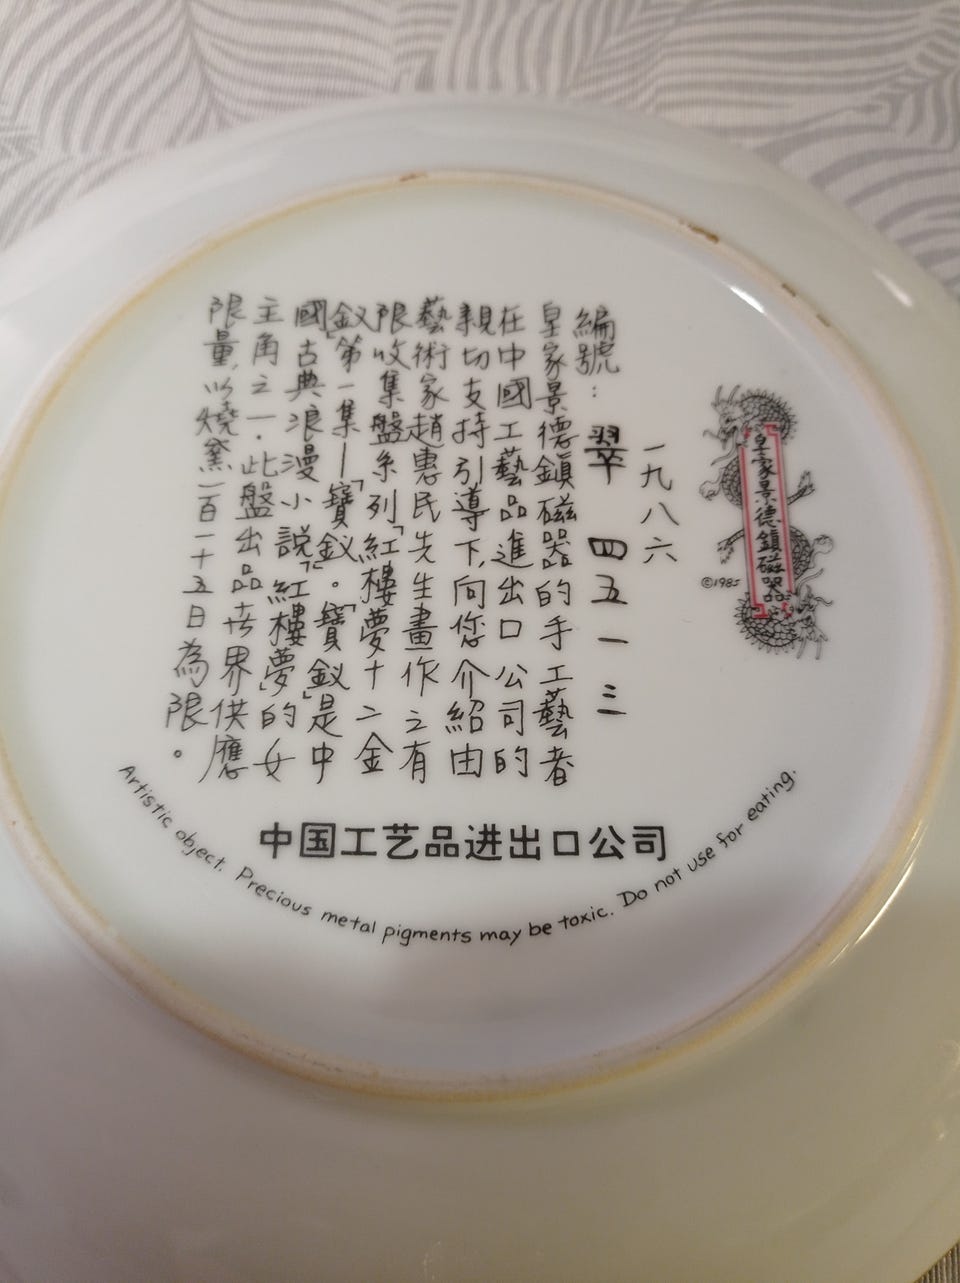 皇家景德鎮磁器
©1985
一九八六
編號：翠 四五一三
皇家景德鎮磁器的手工藝者
在中國工藝品進出口公司的
親切支持引導下，向您介紹由
藝術家趙惠民先生畫作之有
限收集盤系列「紅樓夢十二金
釵」第一集—「寶釵」。「寶釵」是中
國古典浪漫小說「紅樓夢」的女
主角之一．此盤出品世界供應
限量，以燒窯一百一十五日為限。
中国工艺品进出口公司
Artistic object. Precious metal pigments may be toxic. Do not use for eating.